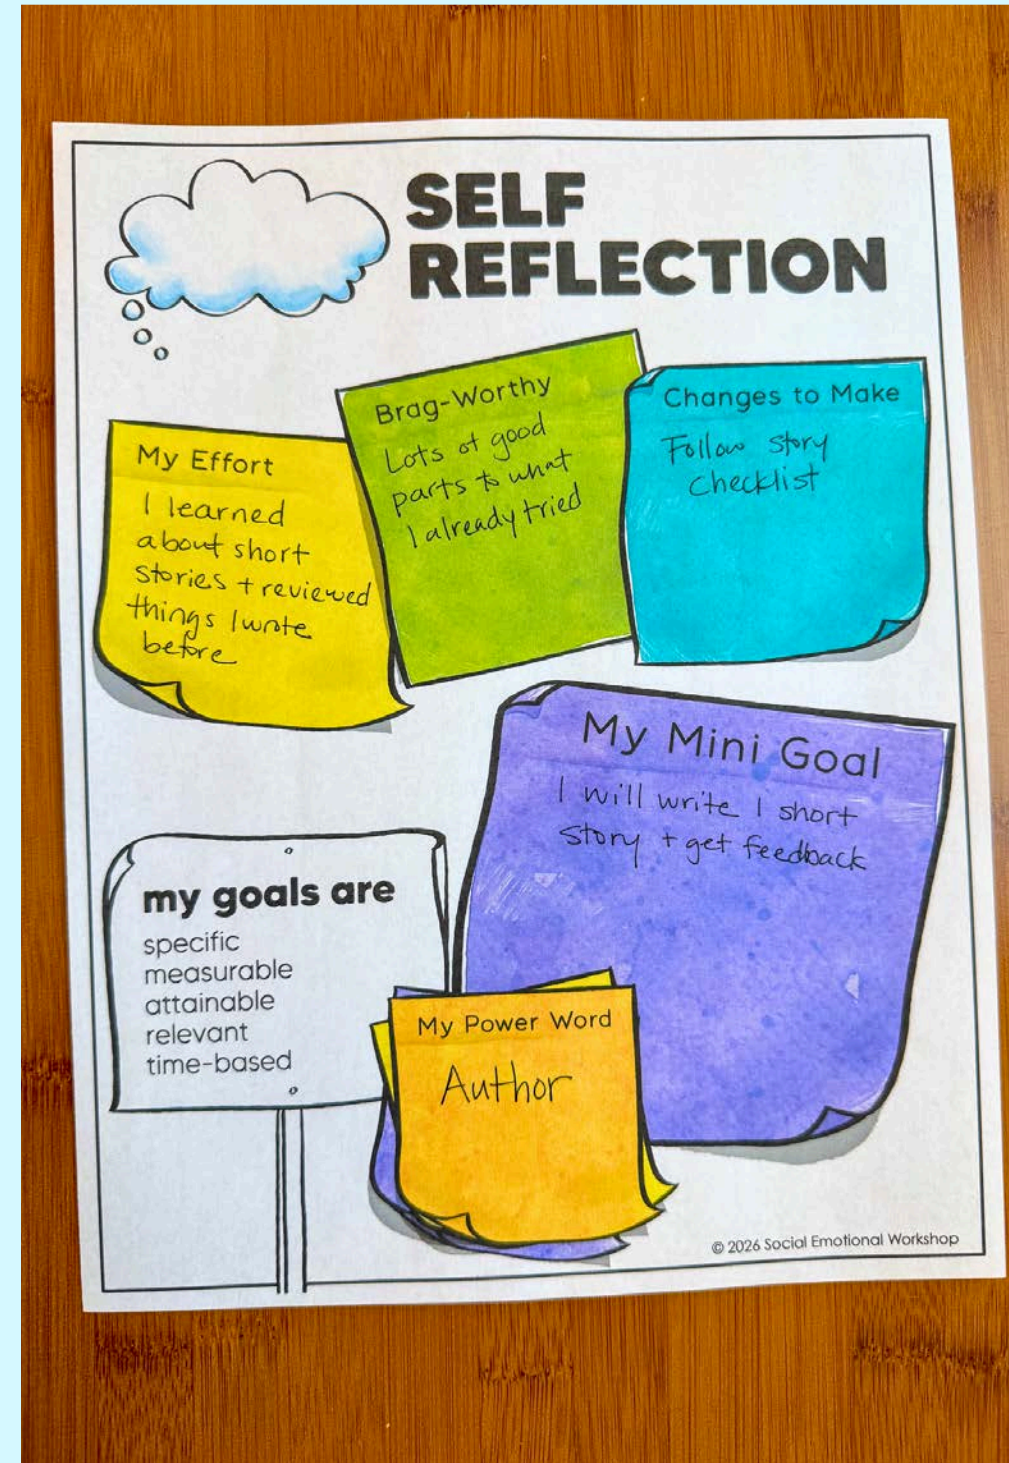 SELF
REFLECTION
My Effort
I learned
about short
stories + reviewed
things I wrote
before
Brag-Worthy
Lots of good
parts to what
I already tried
Changes to Make
Follow story
checklist
My Mini Goal
I will write 1 short
story + get feedback
my goals are
specific
measurable
attainable
relevant
time-based
My Power Word
Author
© 2026 Social Emotional Workshop